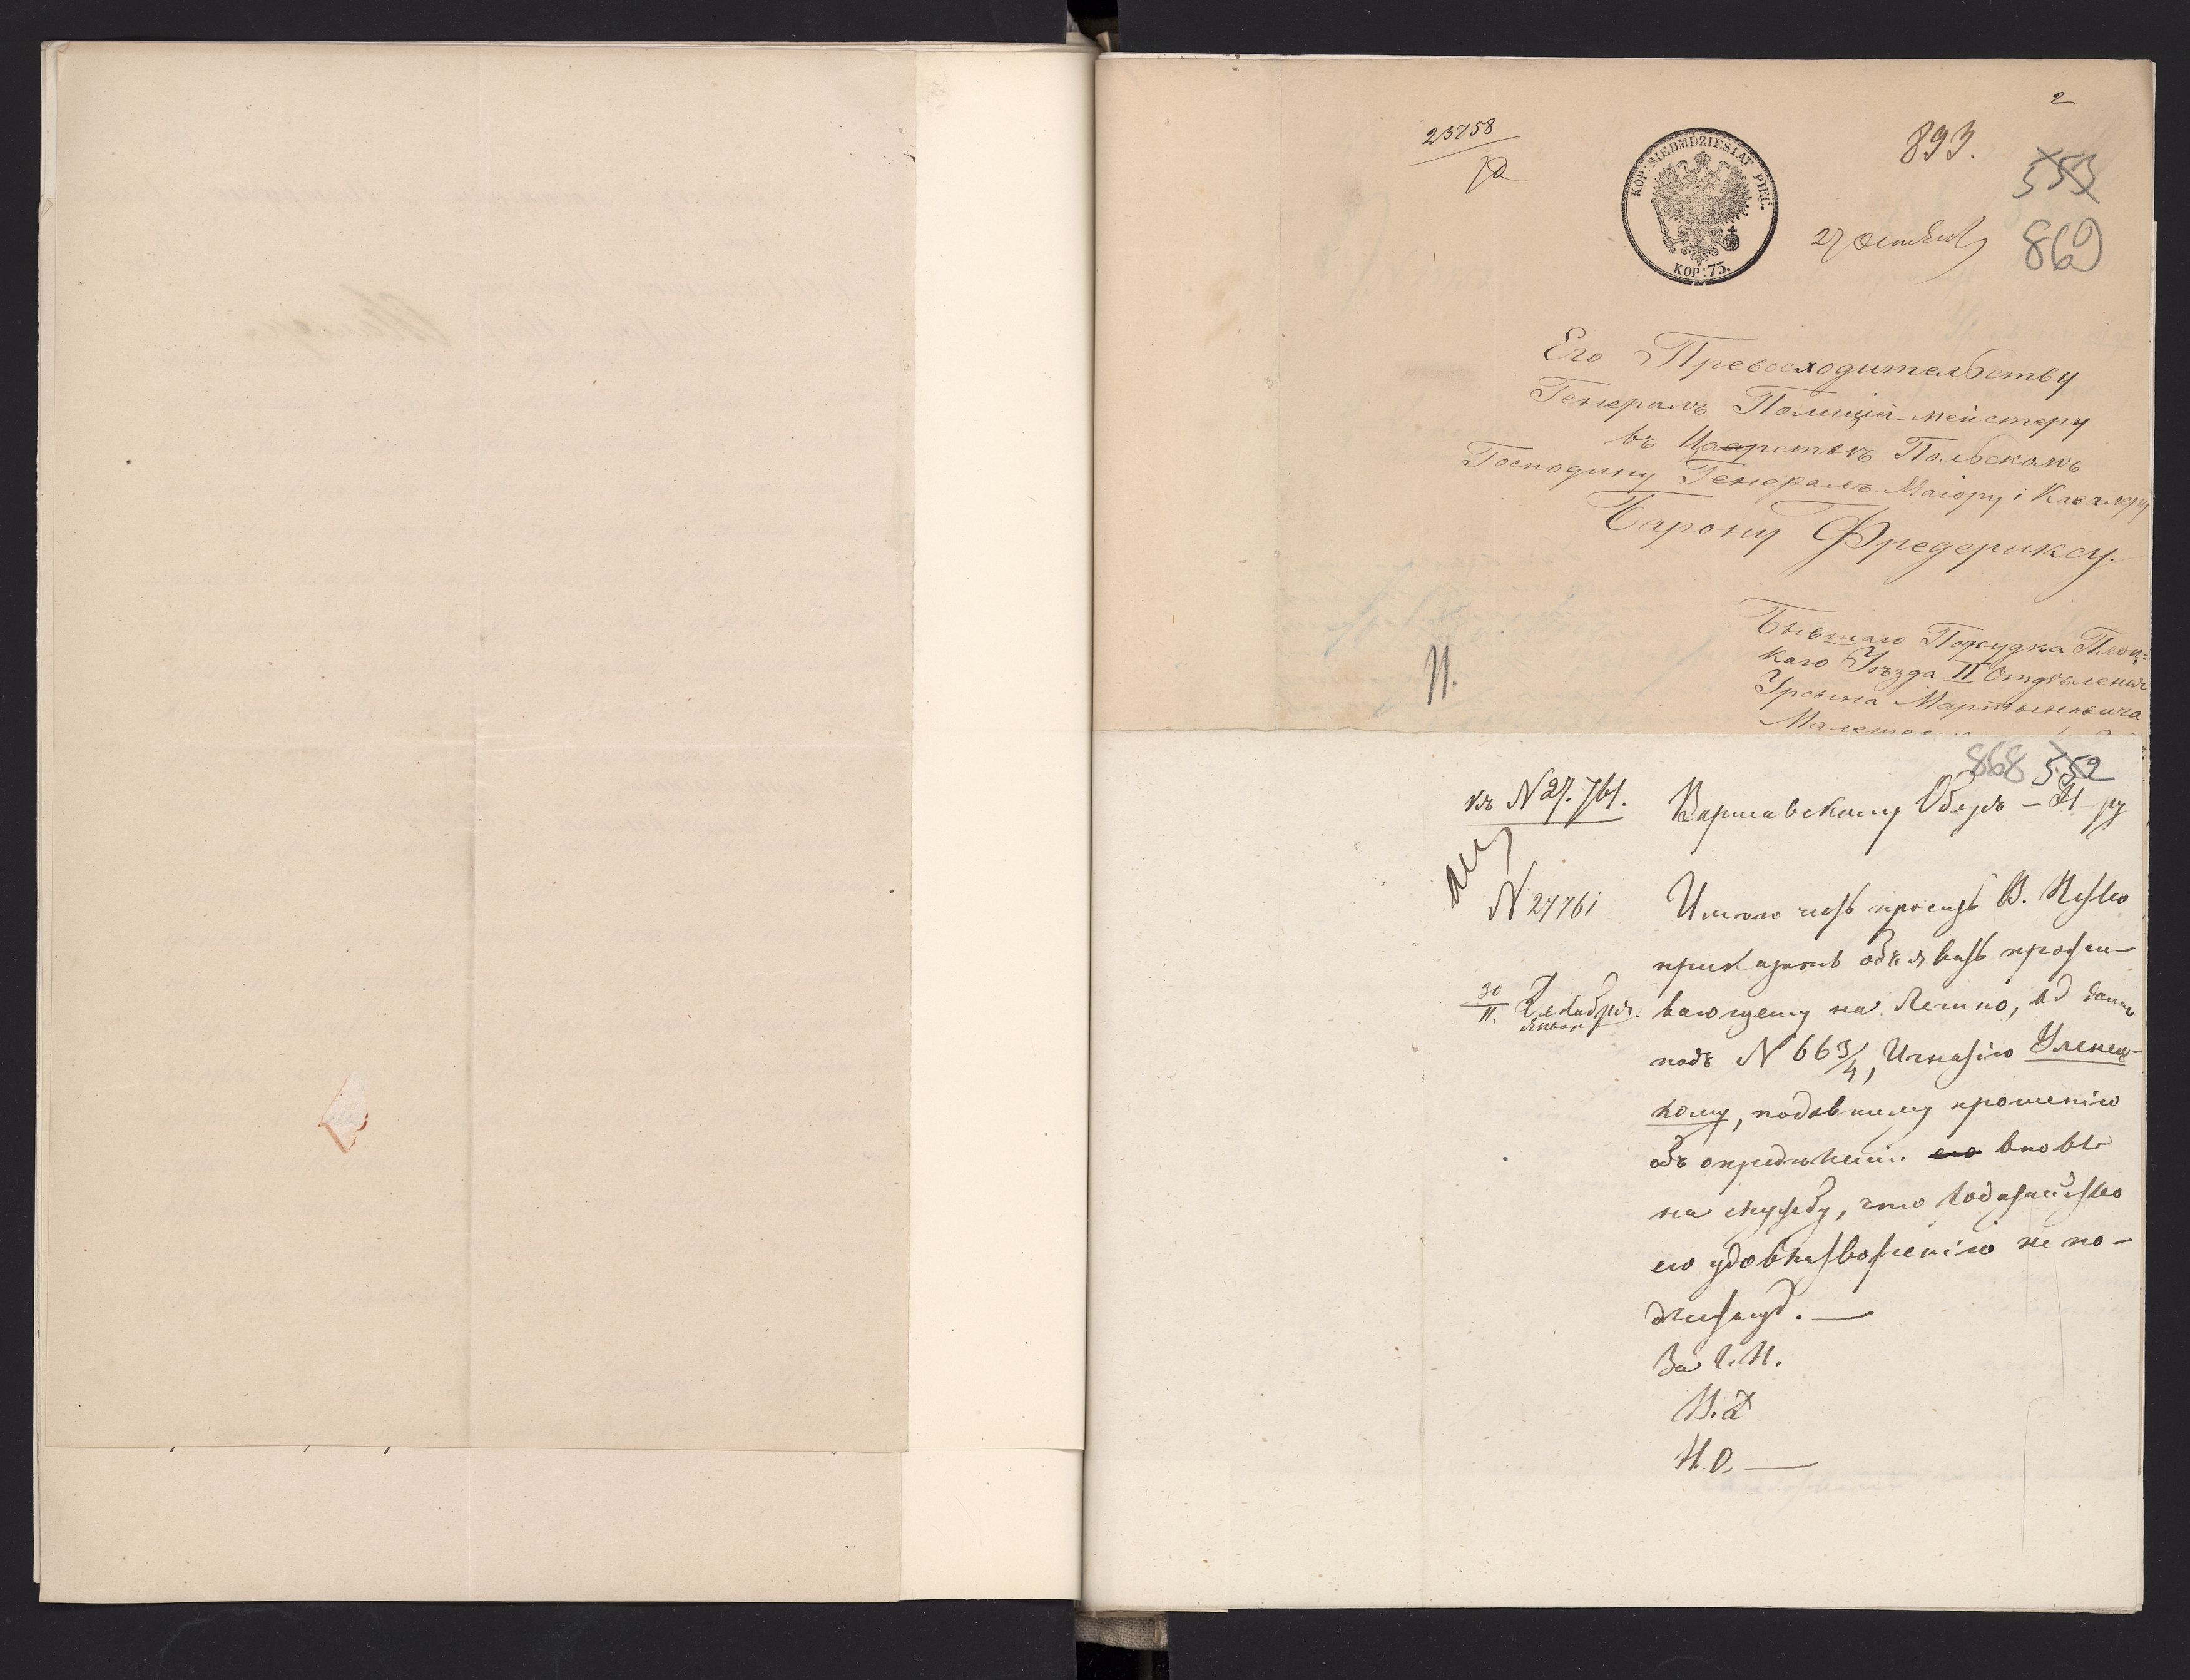 2
23758
893.
553
KOP: SIEDMDZIESIĄT PIĘĆ.
KOP: 75.
27 Октября
869
Его Превосходительству
Генералъ Полиціи-мейстеру
въ Царствѣ Польскомъ
Господину Генералъ-Маіору і Кавалеру
Барону Фредериксу.
Бывшаго Подсудка Плоц=
каго Уѣзда II Отдѣленія
Урсына Мартыновича
868 552
къ N 27.761.
Варшавскому Оберъ-П-ру
N 27761
Имѣю честь просить В.
приказать объявить прожи-
30/11. Декабря.
вающему на Лешно, въ домѣ
подъ N 663/4, Игнатію Уленец-
кому, подавшему прошеніе
объ опредѣленіи его вновь
на службу, что ходатайство
его удовлетворенію не по-
длежитъ. —
За
И. Д
Н. О. —